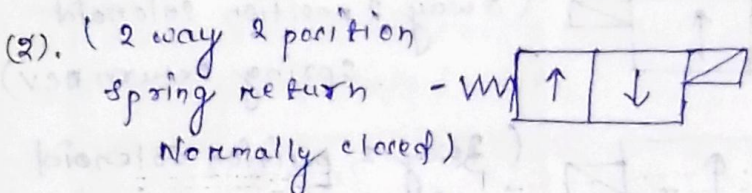 (2). ( 2 way 2 position
spring return -
Normally closed)